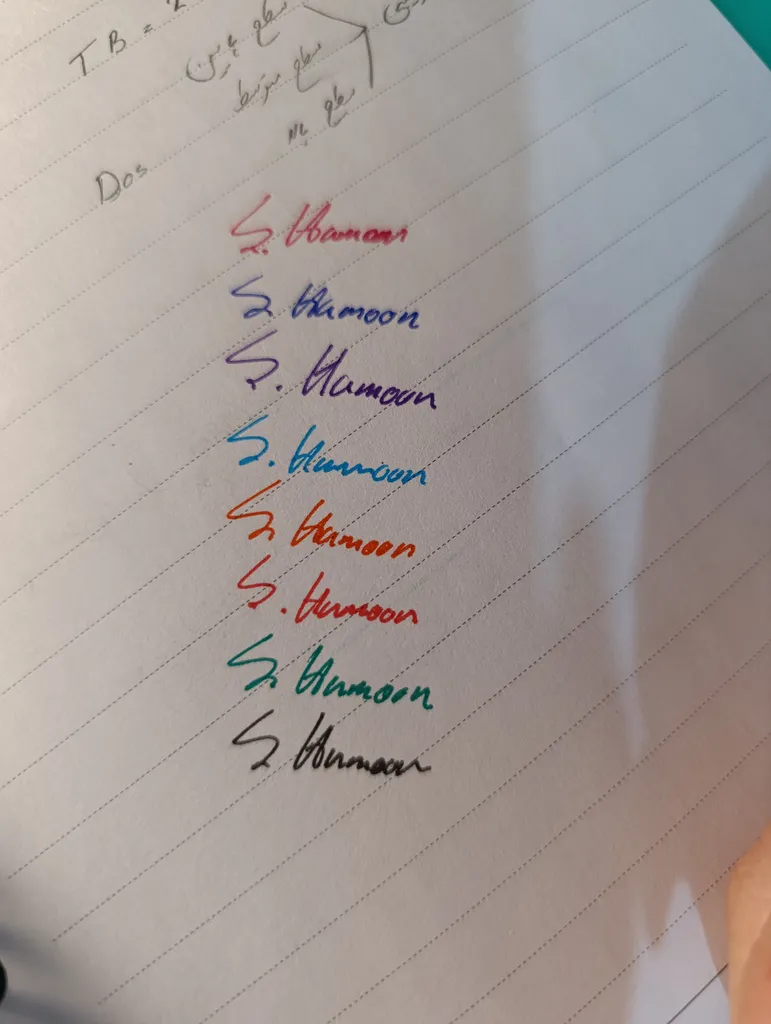 TB = 2
سطح پایین
سطح متوسط
سطح بالا
Dos
S. Hamoon
S. Hamoon
S. Hamoon
S. Hamoon
S. Hamoon
S. Hamoon
S. Hamoon
S. Hamoon